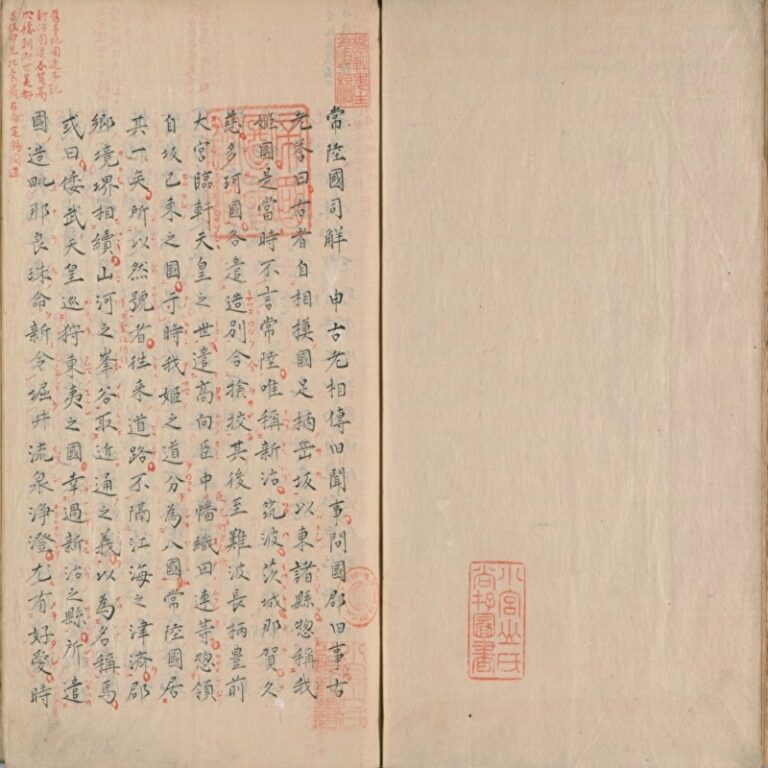 小宮山氏
圖書
常陸國司解 申古老相傳旧聞事問國郡旧事古
老答曰古者自相摸國足柄岳坂以東諸縣惣稱我
姬國是當時不言常陸唯稱新治筑波茨城那賀久
慈多珂國各遣造別令撿挍其後至難波長柄豊前
大宮臨軒天皇之世遣高向臣中幡織田連等惣領
自坂已東之國于時我姬之道分為八國常陸國居
其一矣所以然號者往来道路不隔江海之津済郡
鄉境堺相續山河之峯谷取近通之義以為名稱焉
或曰倭武天皇巡狩東夷之國幸過新治之縣所遣
國造毗那良珠命新令堀井流泉浄澄尤有好受時
舊事紀國造本記
新治國造志賀高
穴穗朝御世美都
呂岐命児比奈羅布命定賜國造